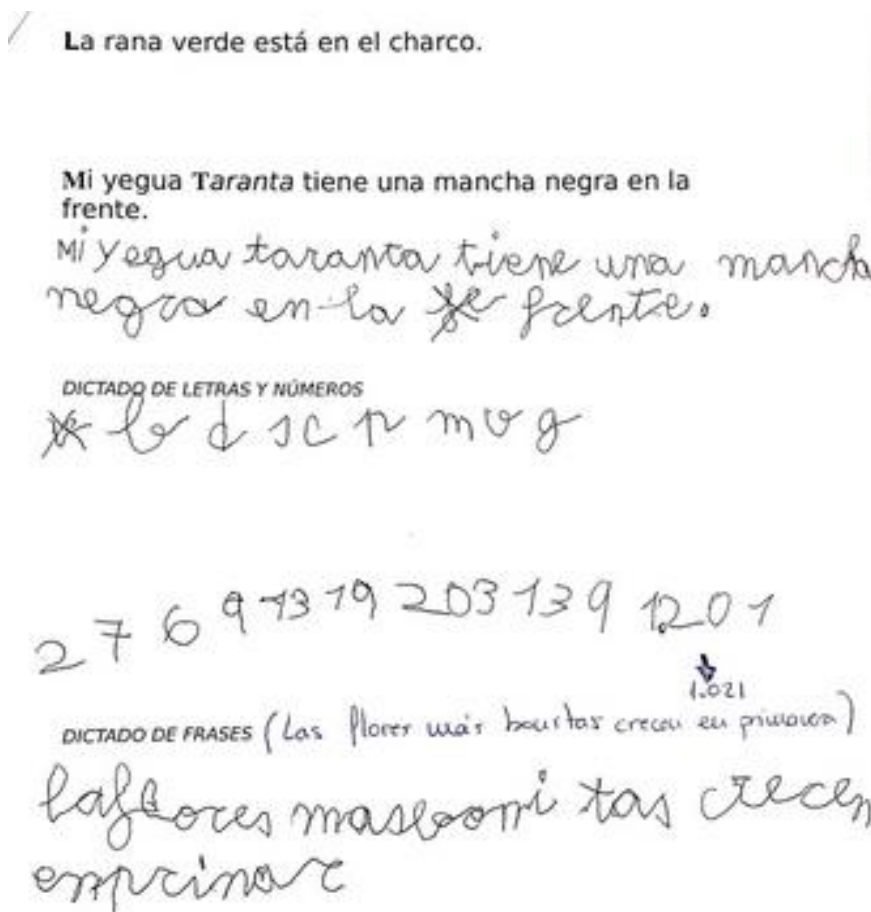 La rana verde está en el charco.
Mi yegua Taranta tiene una mancha negra en la
frente.
Mi yegua taranta tiene una mancha
negra en la frente.
DICTADO DE LETRAS Y NÚMEROS
b d s c p m v g
2 7 6 9 13 19 203 139 1.201
1.021
DICTADO DE FRASES (Las flores más bonitas crecen en primavera)
laflores masbonni tas crecen